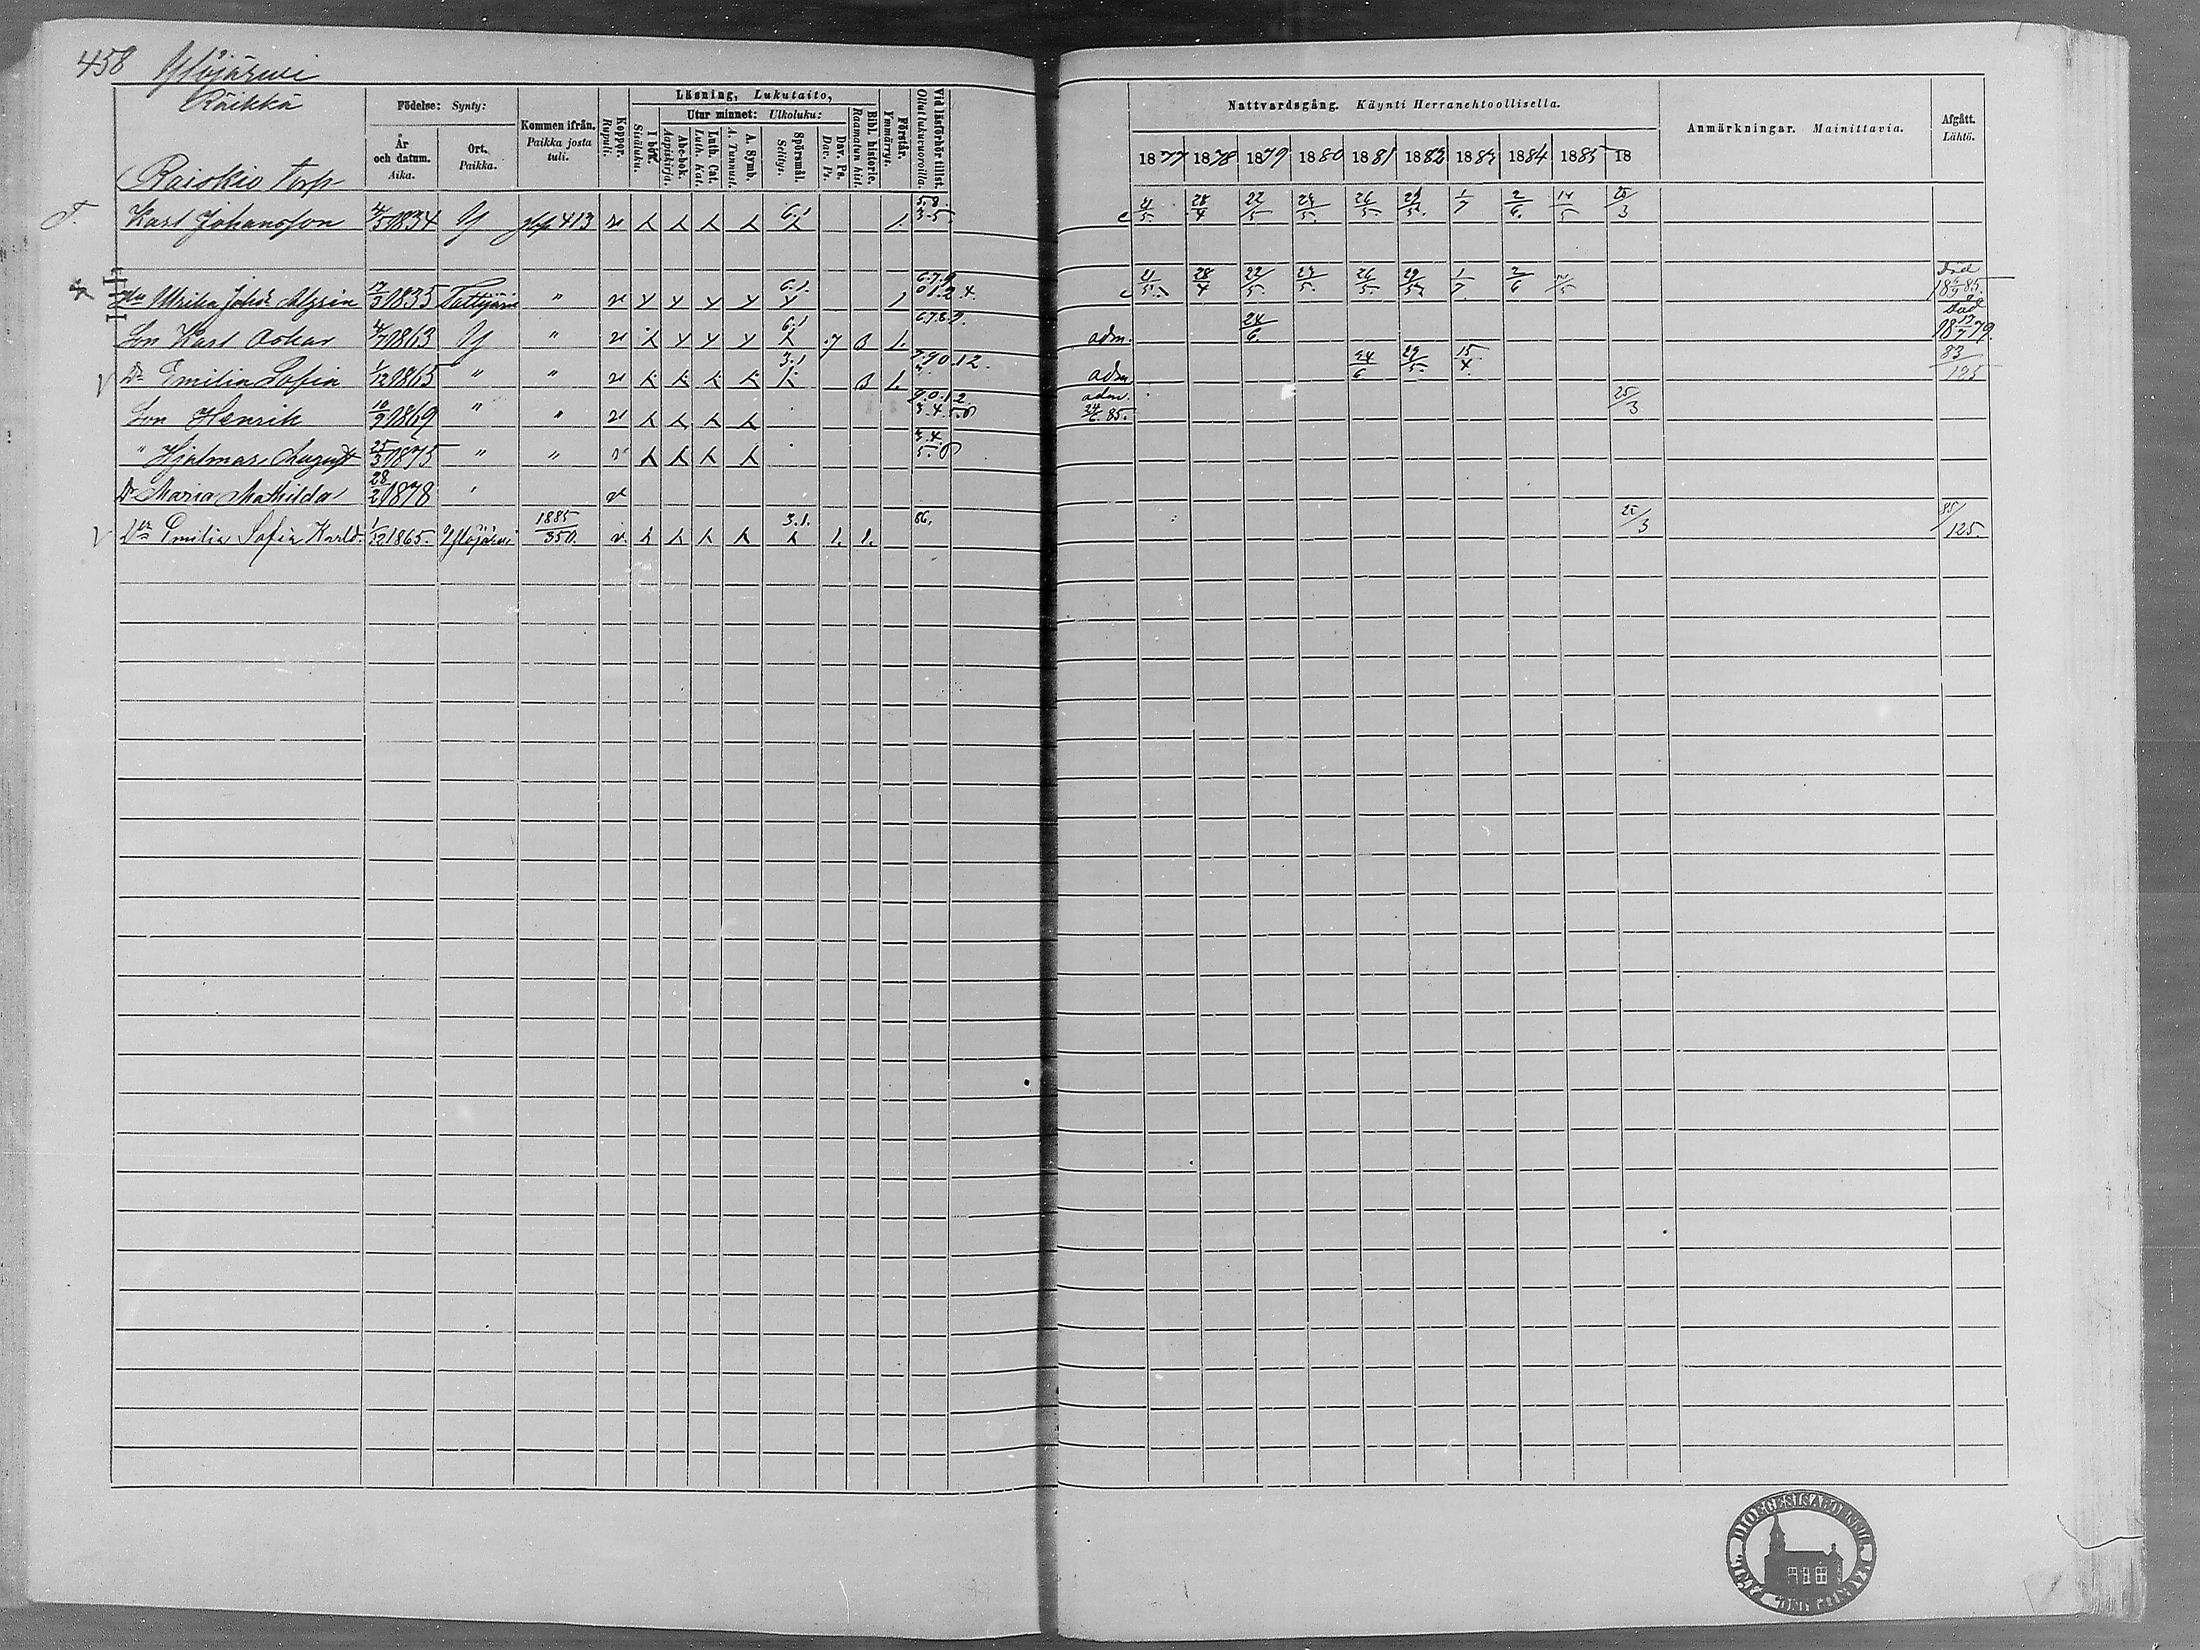 458 Ylöjärvi
Räikkä
Raiskio torp
Födelse: Synty:
År och datum. Aika.
Ort. Paikka.
Kommen ifrån. Paikka josta tuli.
Koppor. Rupuli.
Läsning, Lukutaito,
I bok. Sisäluku.
Utur minnet: Ulkoluku:
Abc-bok. Aapiskirja.
Luth. Cat. Luth. Kat.
A. Symb. A. Tunnust.
Spörsmål. Selitys.
Dav. Ps. Dav. Ps.
Bibl. historie. Raamatun hist.
Förstår. Ymmärrys.
Vid läsförhör tillst. Ollut lukuvuoroilla.
Nattvardsgång. Käynti Herranehtoollisella.
1877 1878 1879 1880 1881 1882 1883 1884 1885 18
Anmärkningar. Mainittavia.
Afgått. Lähtö.
T. Karl Johansson 4/5 1834 Y 413 v 6.1 1. 5.8. 3.5 21/5 28/4 22/5 23/5 26/5 29/5 1/7 2/6 14/5 25/3
Hu Ulrika Johsdr 17/3 1835 " v 6.1. 1 6.7.9 0.1.2.4. 21/5 28/4 22/5 23/5 26/5 29/5 1/7 2/6 14/5 död 85.
Son Karl Oskar 4/7 1863 Y " v 6.1 7 3 1. 6.7.8.9. adm. 24/6. Död 18 17/7 79.
V Dr Emilia Sofia 1/12 1865 " " v 3.1 3 1. 9 0 1 2. adm 24/6 29/5. 15/4. 83/125
Son Henrik 10/9 1869 " " v 9.0.1.2. 3.4. adm. 24/6. 85. 25/3
" Hjalmar August 25/3 1875 " " v 3.4. 5.
Dr Maria Mathilda 28/2 1878 " v
V Dr Emilia Sofia Karlsd. 1/12 1865. Ylöjärvi 1885/350. v. 3.1. 1. 1. 86. 25/3 85/125.